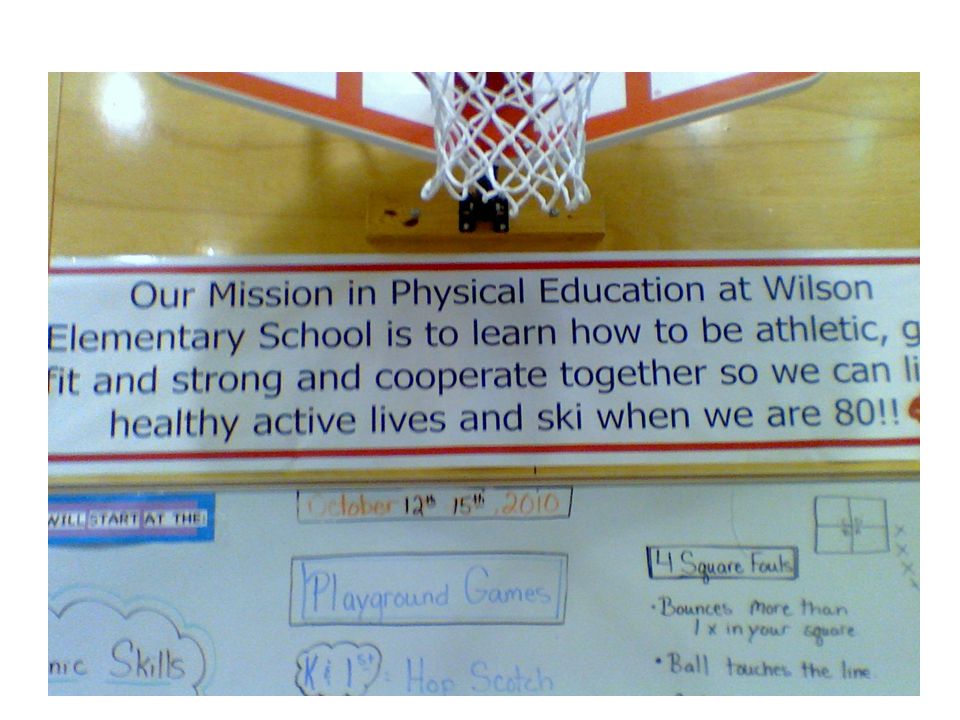 Our Mission in Physical Education at Wilson
Elementary School is to learn how to be athletic, g
fit and strong and cooperate together so we can li
healthy active lives and ski when we are 80!!
WILL START AT THE:
October 12th 15th, 2010
Playground Games
nic Skills
K & 1st: Hop Scotch
4 Square Fouls
• Bounces more than
1 x in your square
• Ball touches the line.